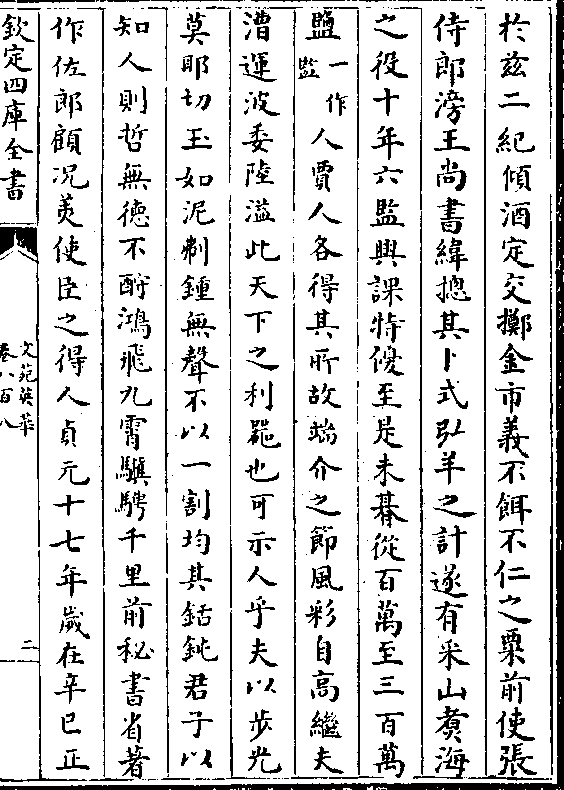 於兹二紀傾酒定交擲金市義不餌不仁之粟前使張
侍郎滂王尚書緯揔其卜式弘羊之計遂有采山煑海
之役十年六監興課特優至是未朞從百萬至三百萬
鹽一作監人賈人各得其所故端介之節風彩自高繼夫
漕運波委陸溢此天下之利噐也可示人乎夫以步光
莫耶切玉如泥剸鍾無聲不以一割均其銛鈍君子以
知人則哲無德不酧鴻飛九霄驥騁千里前秘書省著
作佐郎顧况羙使臣之得人貞元十七年歲在辛巳正
欽定四庫全書
文苑英華
卷八百八
二